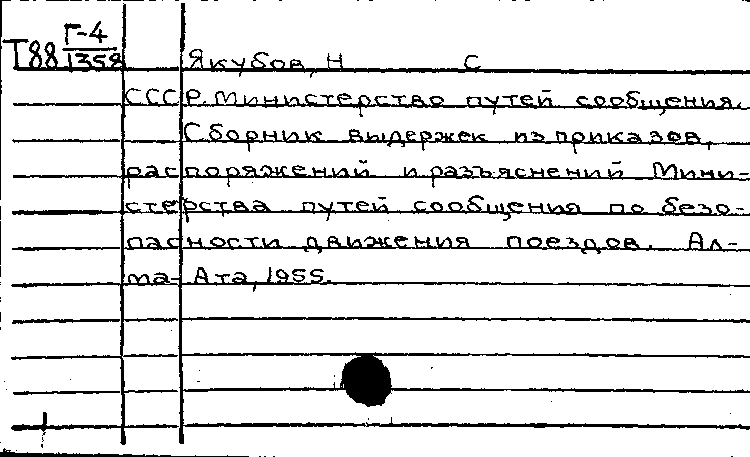 Г-4
Т88 1358 Якубов, Н С
СССР. Министерство путей сообщения.
Сборник выдержек из приказов,
распоряжений и разъяснений Мини-
стерства путей сообщения по безо-
пасности движения поездов. Ал-
ма-Ата, 1955.